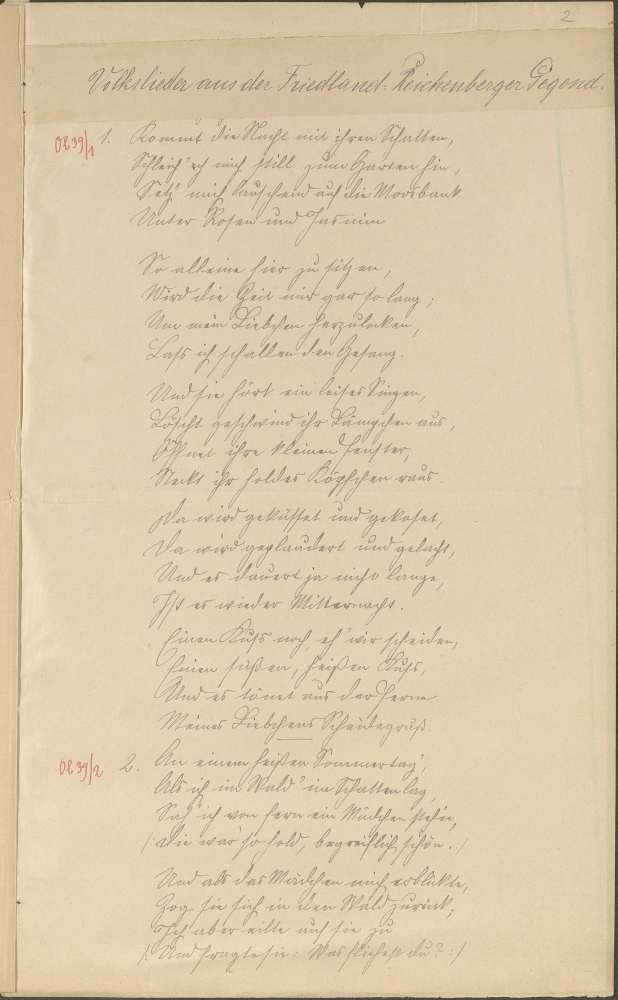 2
Volkslieder aus der Friedland-Reichenberger Gegend.
OE 39/1 1. Kommt die Nacht mit ihren Schatten,
Schleich' ich mich still zum Garten hin,
Setz' mich lauschend auf die Moosbank
Unter Rosen und Jasmin
So alleine hier zu sitzen,
Wird die Zeit mir gar so lang;
Um mein Liebchen herzulocken,
Lass ich schallen den Gesang.
Und sie hört ein leises Singen,
Löscht geschwind ihr Lämpchen aus,
Öffnet ihre kleinen Fenster,
Steckt ihr holdes Köpfchen raus.
Da wird geküsset und gekoset,
Da wird geplaudert und gelacht,
Und es dauert ja nicht lange,
Ist es wieder Mitternacht.
Einen Kuss noch, eh' wir scheiden,
Einen süßen, heißen Kuss,
Und es tönet aus der Ferne
Meines Liebchens Scheidegruß.
OE 39/2 2. An einem heißen Sommertag',
Als ich im Wald' im Schatten lag,
Sah' ich von fern ein Mädchen steh'n,
/: Die war so hold, begreiflich schön. :/
Und als das Mädchen mich erblickte,
Zog sie sich in den Wald zurück;
Ich aber eilte auf sie zu
/: Und fragte sie: Was fliehest du? :/